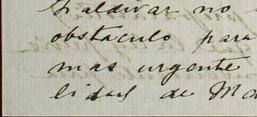 Zaldivar no
obstaculo para
mas urgente
lidad de Ma